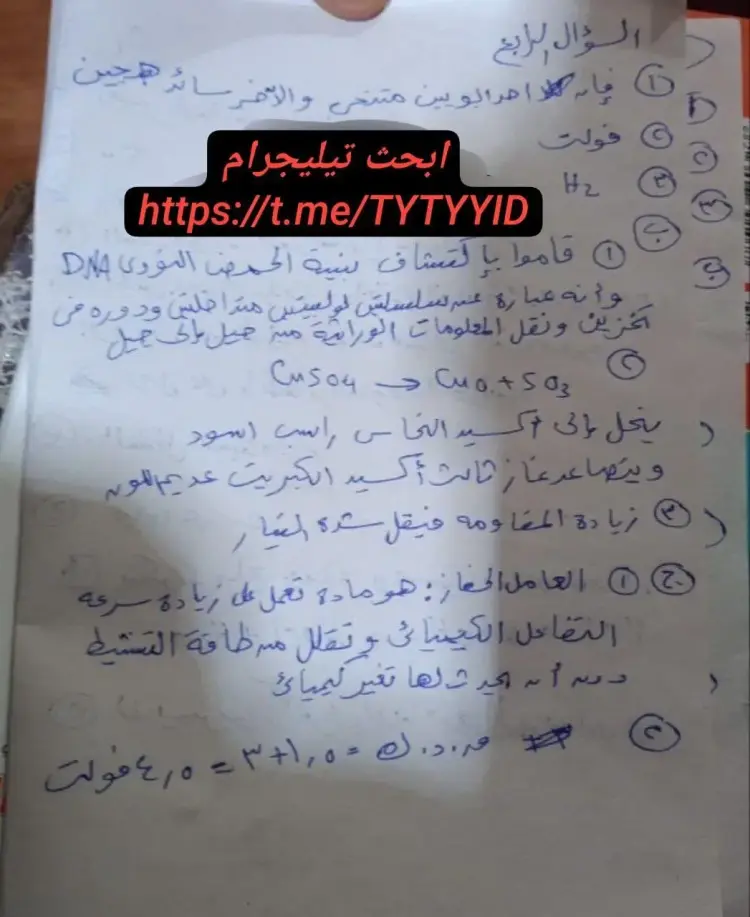 السؤال الرابع
① فإنه احد البويين متنحى والآخر سائد هجين
② فولت
③ H2
ابحث تيليجرام
https://t.me/TYTYYID
ب ① قاموا بإكتشاف بنية الحمض النووى DNA
وأنه عبارة عن سلسلتين لولبيتين متداخلتين ودوره فى
تخزين ونقل المعلومات الوراثية من جيل إلى جيل
② CuSO4 → CuO + SO3
ينحل إلى أكسيد النحاس راسب اسود
ويتصاعد غاز ثالث أكسيد الكبريت عديم اللون
③ زيادة المقاومه فيقل شدة التيار
ج ① العامل الحفاز: هو مادة تعمل على زيادة سرعه
التفاعل الكيميائى وتقلل من طاقة التنشيط
دون أن يحدث لها تغير كيميائى
② ق.د.ك = ١,٥+٣ = ٤,٥ فولت